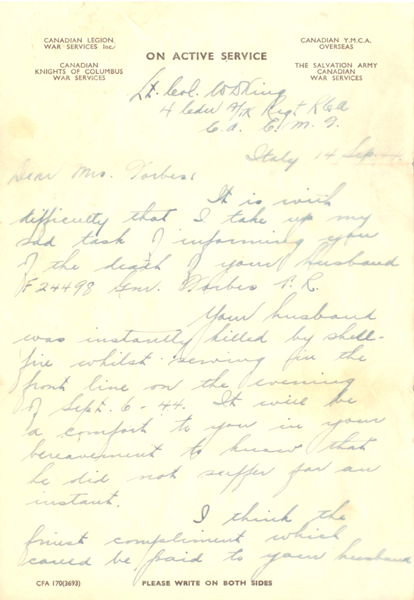 CANADIAN LEGION
WAR SERVICES Inc.
CANADIAN
KNIGHTS OF COLUMBUS
WAR SERVICES
ON ACTIVE SERVICE
CANADIAN Y.M.C.A.
OVERSEAS
THE SALVATION ARMY
CANADIAN
WAR SERVICES
Lt. Col. W D King
4 Cdn A/Tk Regt RCA
C.A. C.M.F.
Italy 14 Sep. 44.
Dear Mrs. Forbes,
It is with
difficulty that I take up my
sad task of informing you
of the death of your husband
F 24498 Gnr. Forbes P. R.
Your husband
was instantly killed by shell-
fire whilst serving in the
front line on the evening
of Sept. 6 - 44. It will be
a comfort to you in your
bereavement to know that
he did not suffer for an
instant.
I think the
finest compliment which
could be paid to your husband
CFA 170(3693)
PLEASE WRITE ON BOTH SIDES